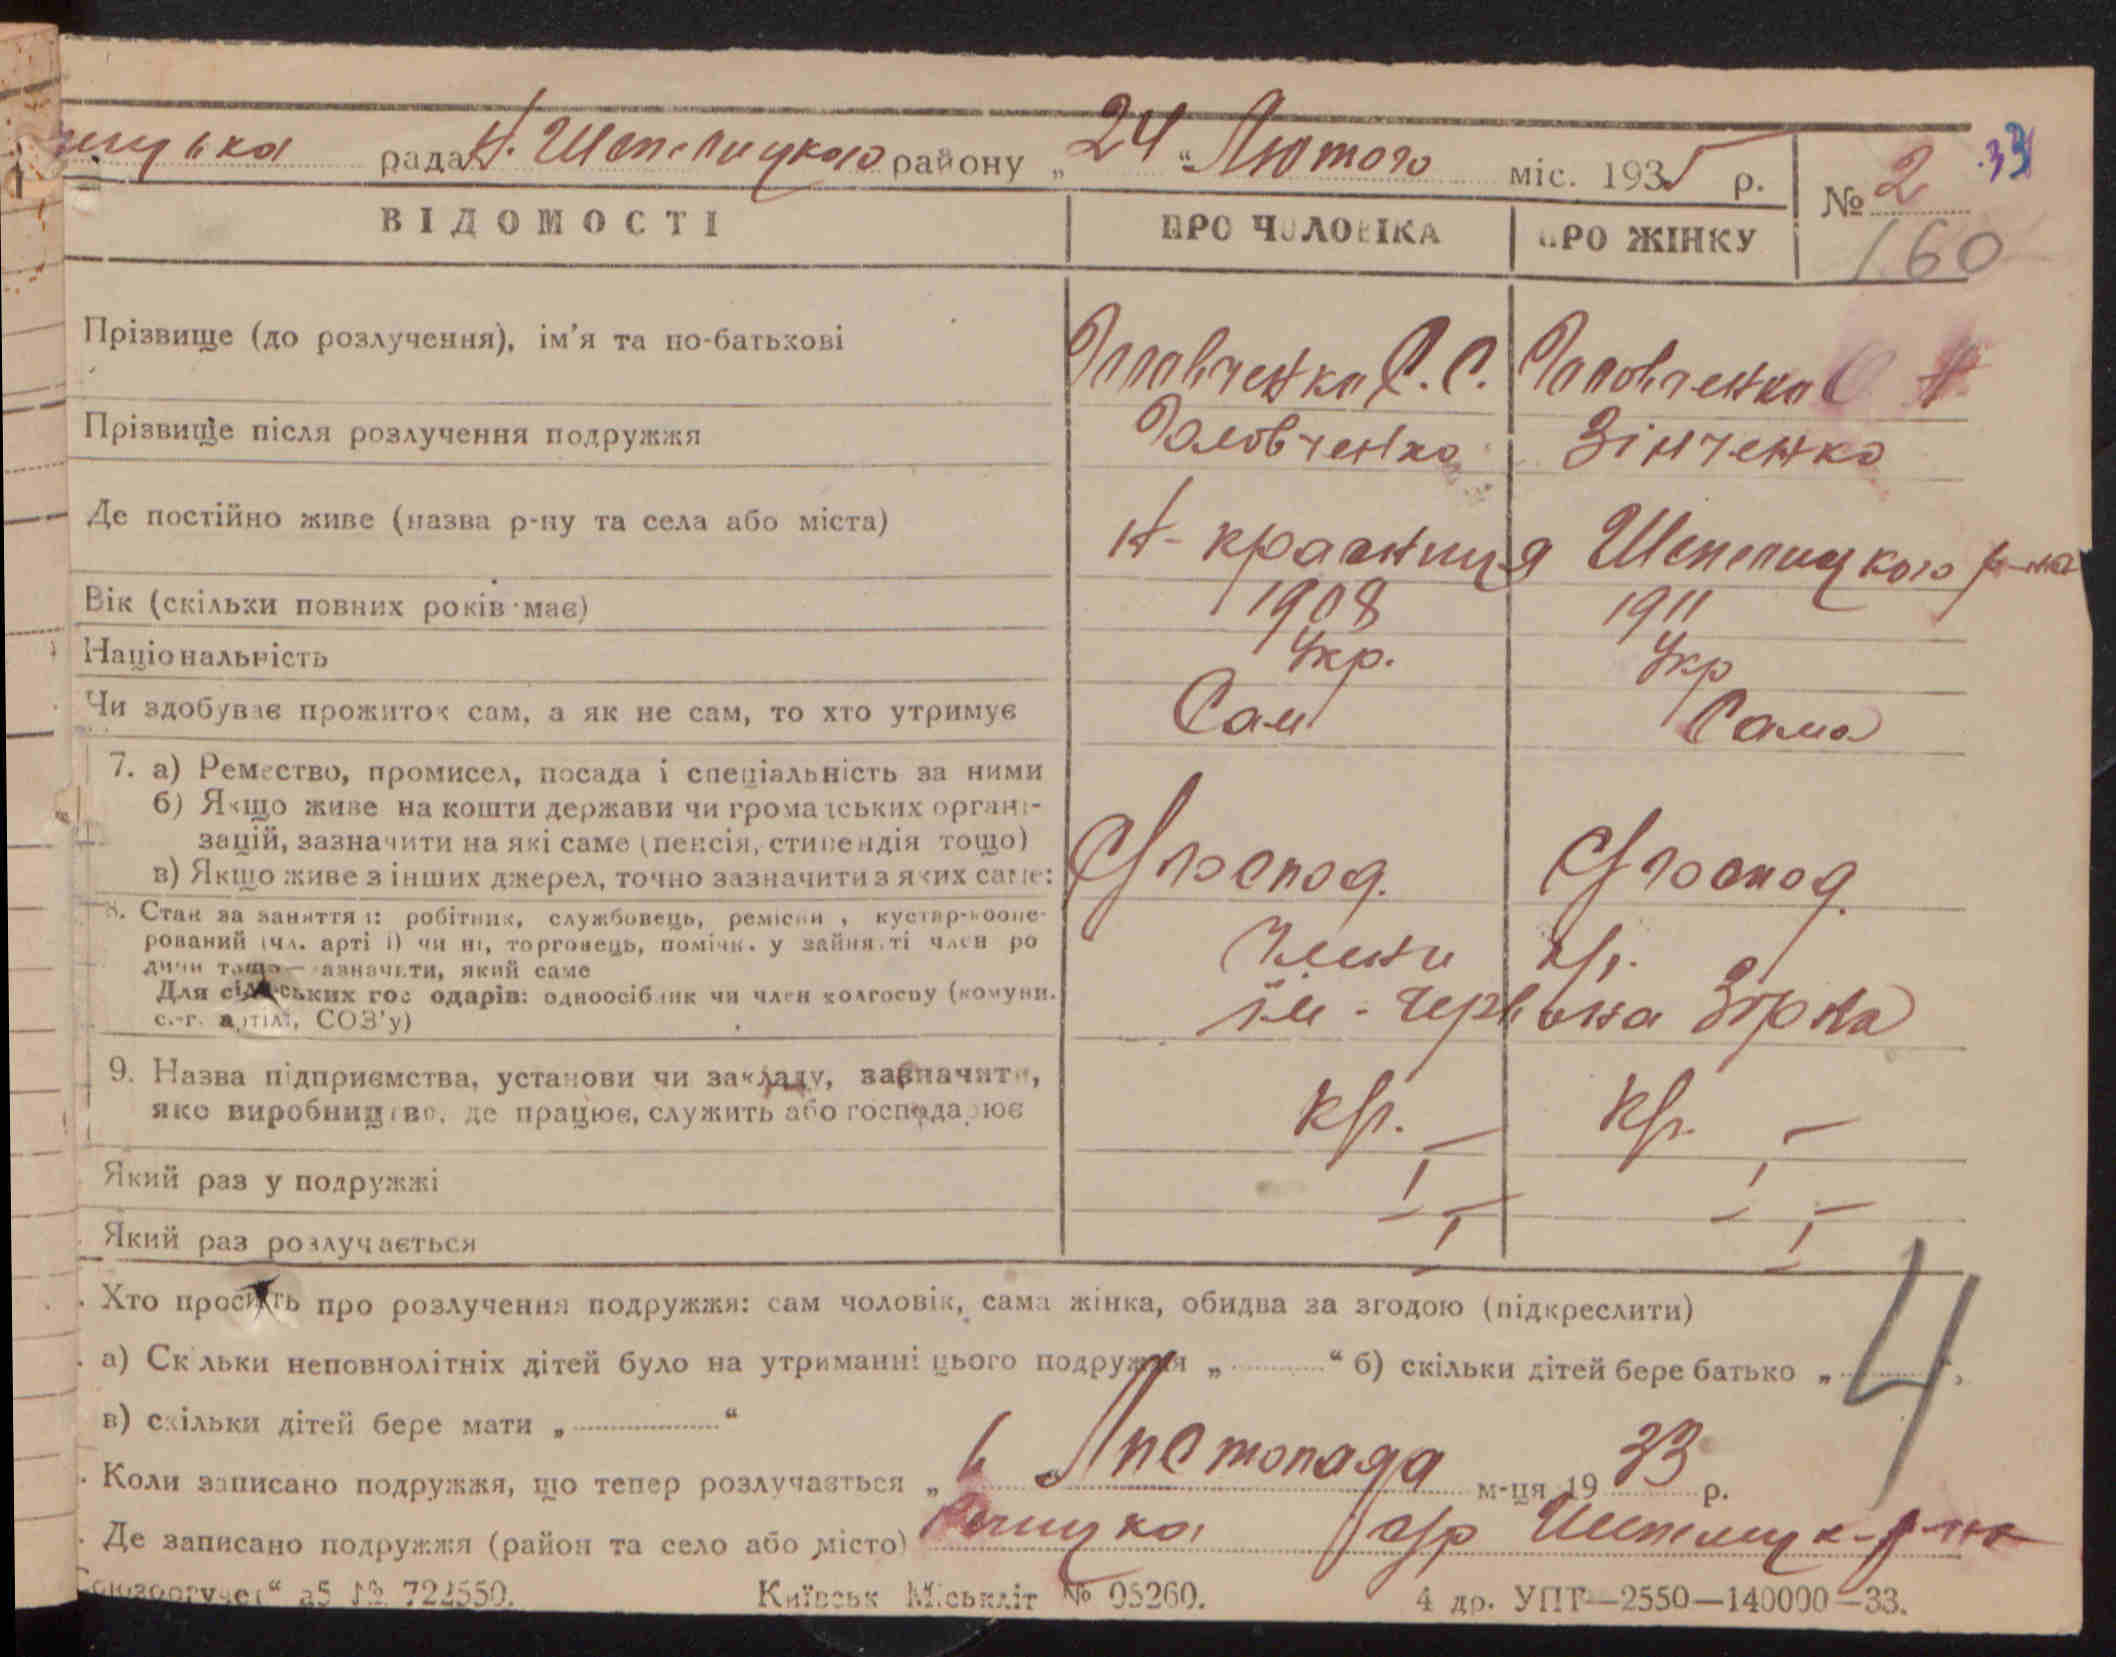 рада Н. Шепелицкого району „24“ Лютого міс. 1935 р. № 2 33
160
ВІДОМОСТІ ПРО ЧОЛОВІКА ПРО ЖІНКУ
Прізвище (до розлучення), ім'я та по-батькові Головченко С. С. Головченко
Прізвище після розлучення подружжя Головченко Зінченко
Де постійно живе (назва р-ну та села або міста) Н-красниця Шепелицкого р-на
Вік (скільки повних років має) 1908 1911
Національність Укр. Укр
Чи здобуває прожиток сам, а як не сам, то хто утримує Сам Сама
7. а) Ремество, промисел, посада і спеціальність за ними
б) Якщо живе на кошти держави чи громадських органі-
зацій, зазначити на які саме (пенсія, стипендія тощо)
в) Якщо живе з інших джерел, точно зазначити з яких саме: господ. господ.
8. Стан за заняттям: робітник, службовець, ремісник, кустар-коопе-
рований (чл. артілі) чи ні, торговець, помічн. у занятті член ро
дини тощо — зазначити, який саме Члени кг.
Для сільських господарів: одноосібник чи член колгоспу (комуни,
с.-г. артілі, СОЗ'у) ім-Червона Зірка
9. Назва підприємства, установи чи закладу, зазначити,
яке виробництво, де працює, служить або господарює кг. кг.
Який раз у подружжі I I
Який раз розлучається I I
Хто просить про розлучення подружжя: сам чоловік, сама жінка, обидва за згодою (підкреслити)
а) Скільки неповнолітніх дітей було на утриманні цього подружжя „ “ б) скільки дітей бере батько „
4
в) скільки дітей бере мати „ “
Коли записано подружжя, що тепер розлучається „6“ Листопада м-ця 1933 р.
Де записано подружжя (район та село або місто) с/р Шепелицк-р-на
Союзоргучет“ а5 № 722550. Київськ Міськліт № 05260. 4 др. УПТ—2550—140000—33.